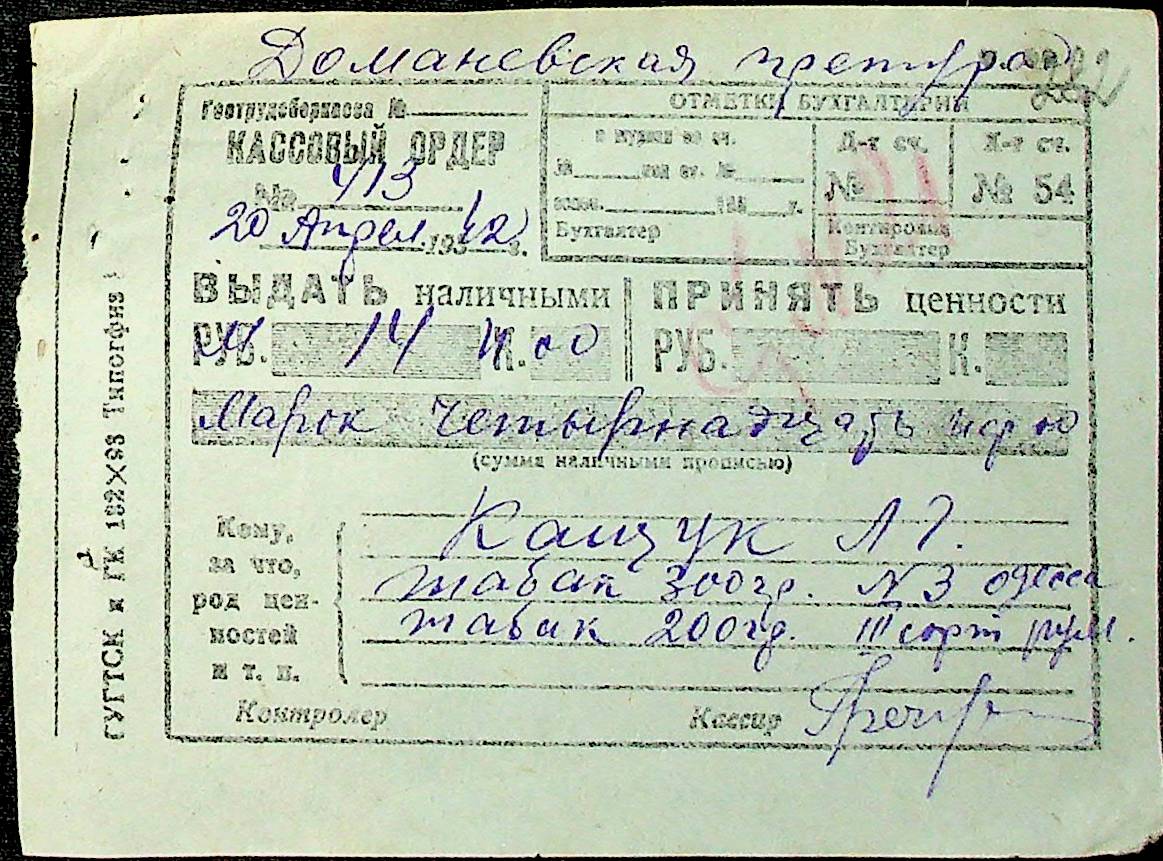 Доманевская претура
222
Гострудсберкасса №
КАССОВЫЙ ОРДЕР
№ 413
20 Апрел. 193 42 г.
ОТМЕТКИ БУХГАЛТЕРИИ
№ под сч. №
193 г.
Бухгалтер
Д-т сч.
№
К-т сч.
№ 54
Контировал
Бухгалтер
ВЫДАТЬ наличными
РУБ. 14 К. 00
ПРИНЯТЬ ценности
РУБ. К.
Марок Четырнадцать
(сумма наличными прописью)
Кому,
за что,
род цен-
ностей
и т. п.
Кащук А Г.
табак 300гр. N3 одесса
табак 200гр. III сорт рум.
Контролер
Кассир
ГУГТСК и ГК 182×88 Типогфия